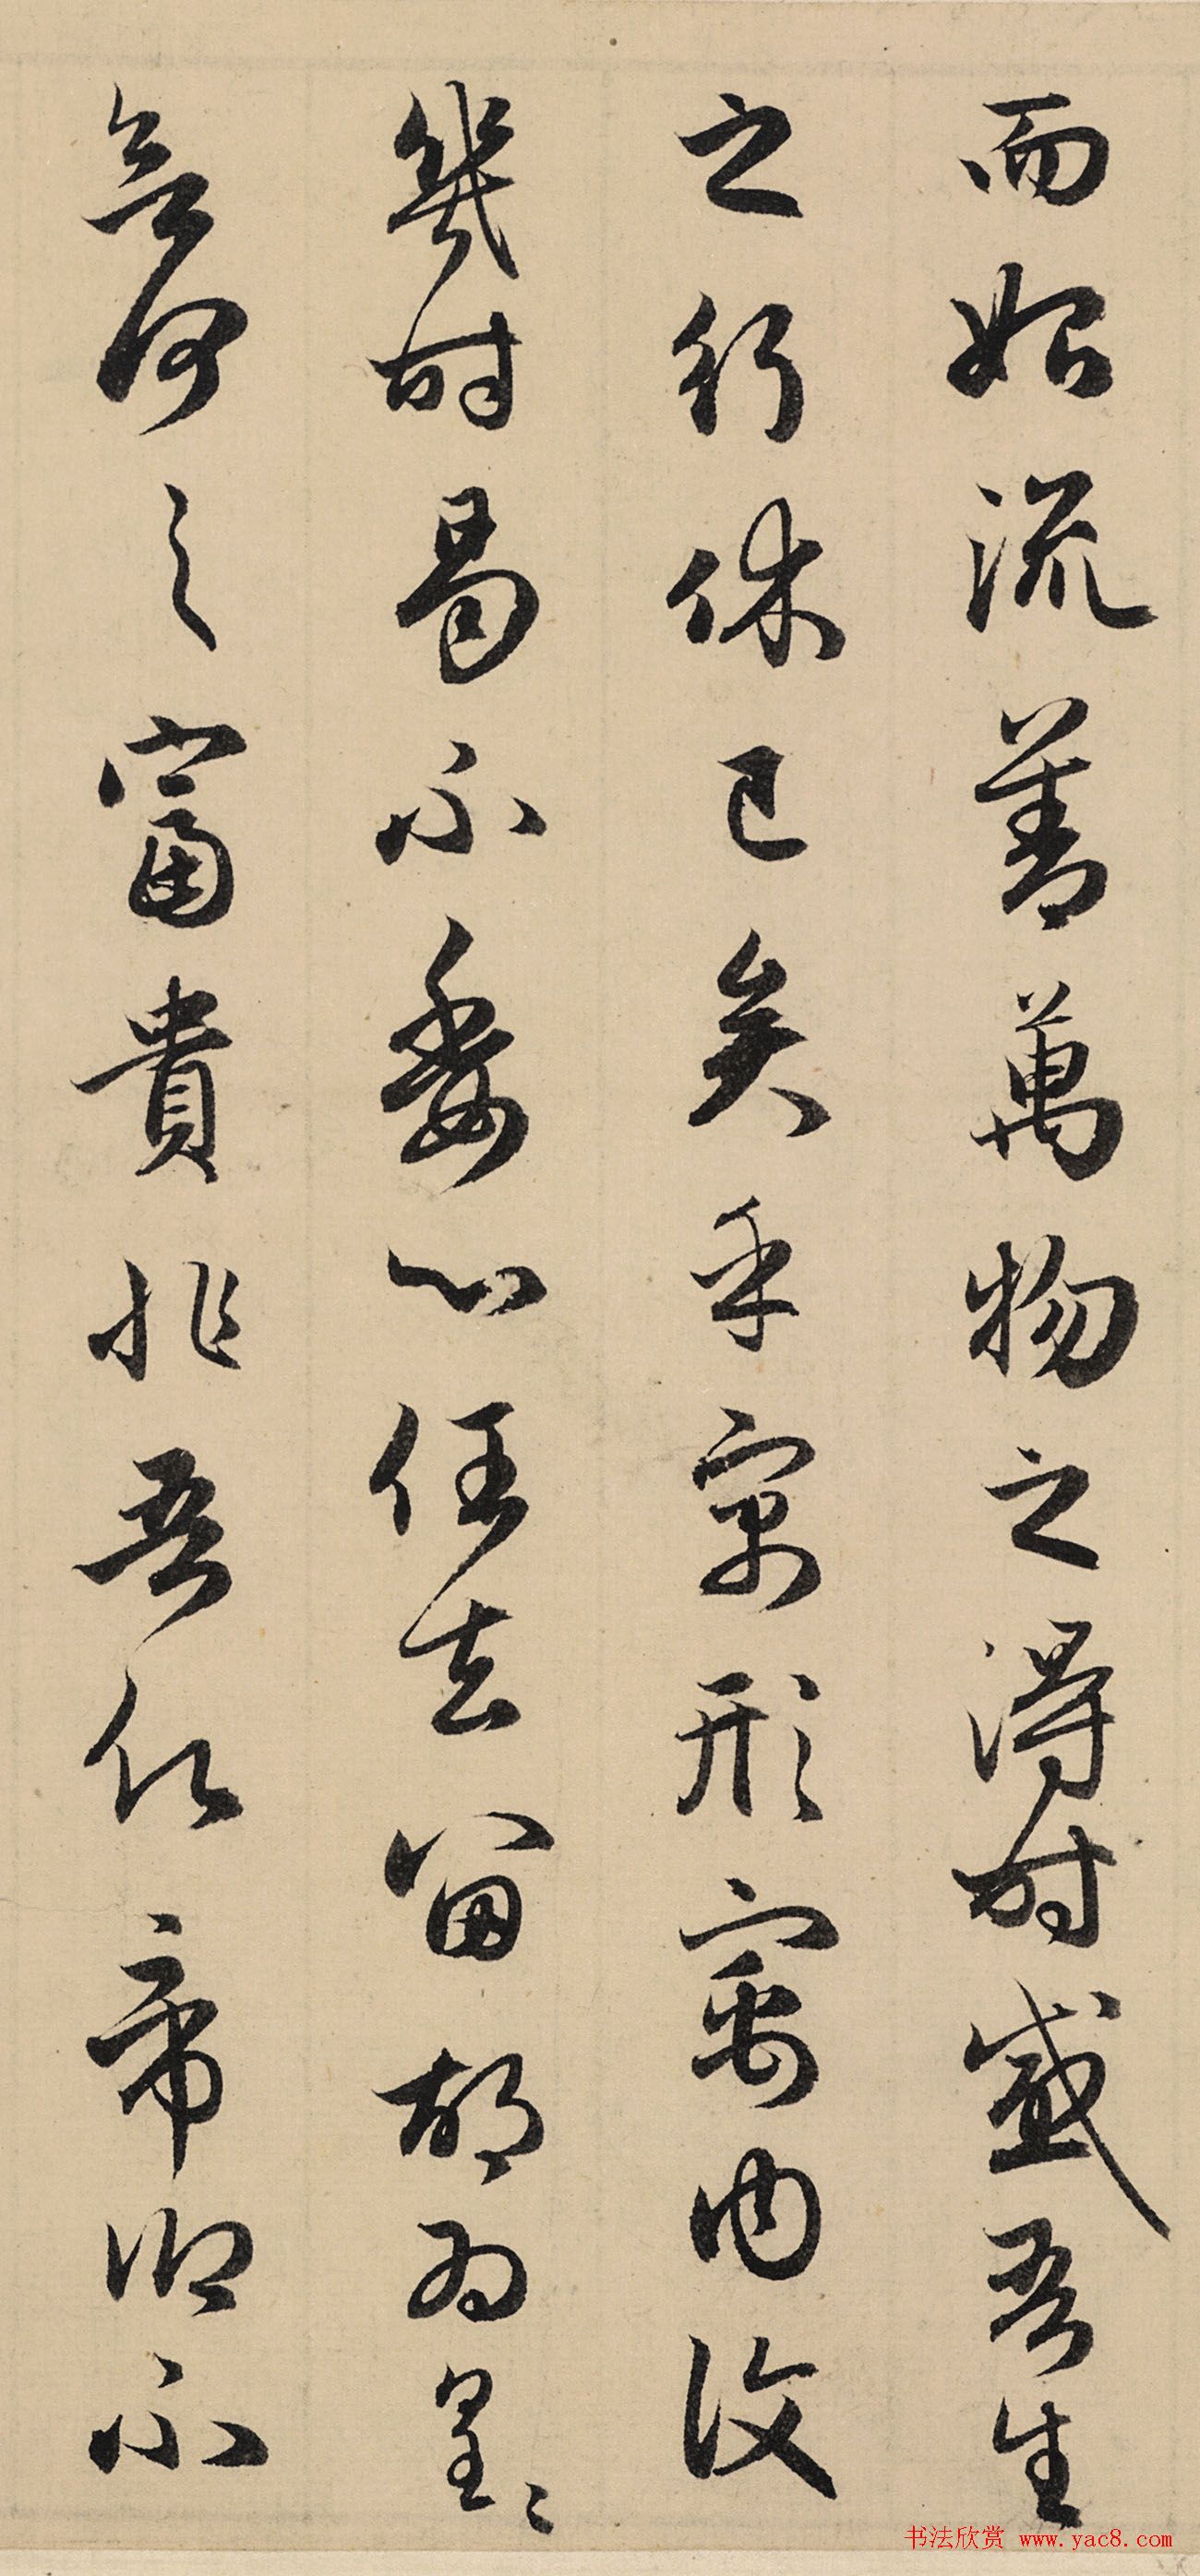 而始流善萬物之得時感吾生
之行休已矣乎寓形寓内復
幾時曷不委心任去留胡為皇〻
何之富貴非吾願帝鄉不
书法欣赏 www.yac8.com